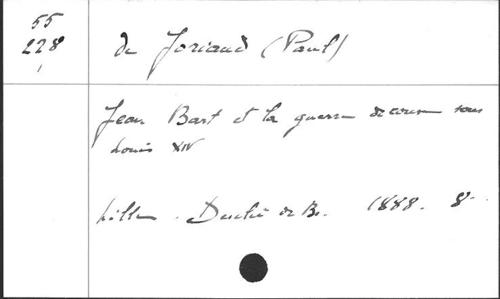 55
228
de Joriaud (Paul)
Jean Bart et la guerre de course sous
Louis XIV
Lille. 1888. 8°